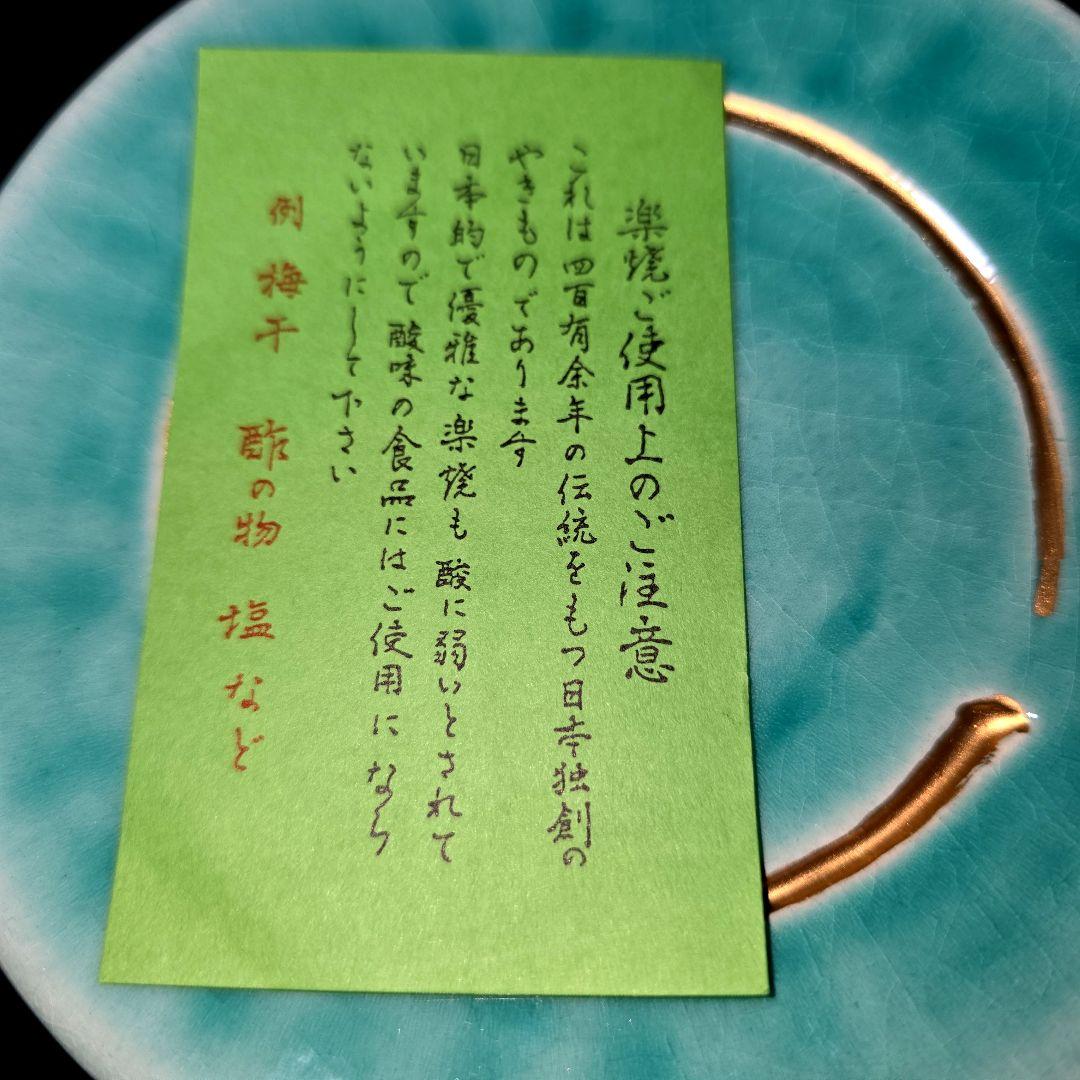 楽焼ご使用上のご注意
これは四百有余年の伝統をもつ日本独創の
やきものであります
日本的で優雅な楽焼も 酸に弱いとされて
いますので 酸味の食品にはご使用になら
ないようにして下さい
例 梅干 酢の物 塩 など